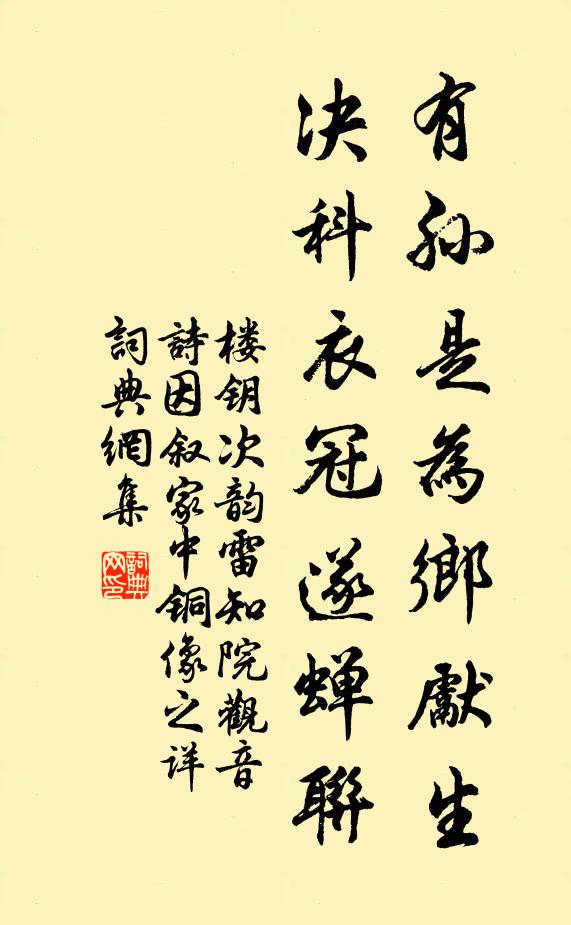 有孙是為鄉獻生
决科衣冠遂蝉聯
楼钥次韵雷知院觀音
詩因叙家中铜像之详
詞典網集
詞典
网印